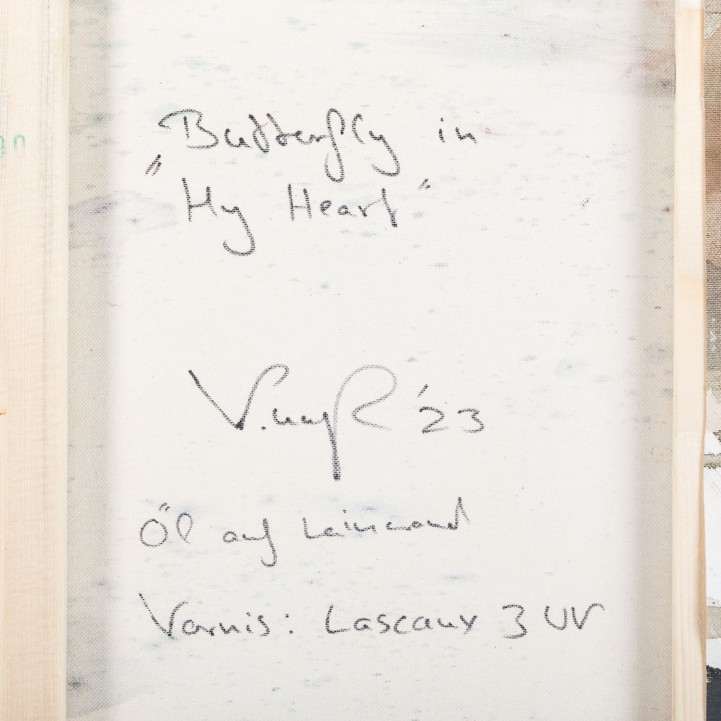 „Butterfly in
My Heart"
'23
Öl auf Leinwand
Varnis: Lascaux 3 UV